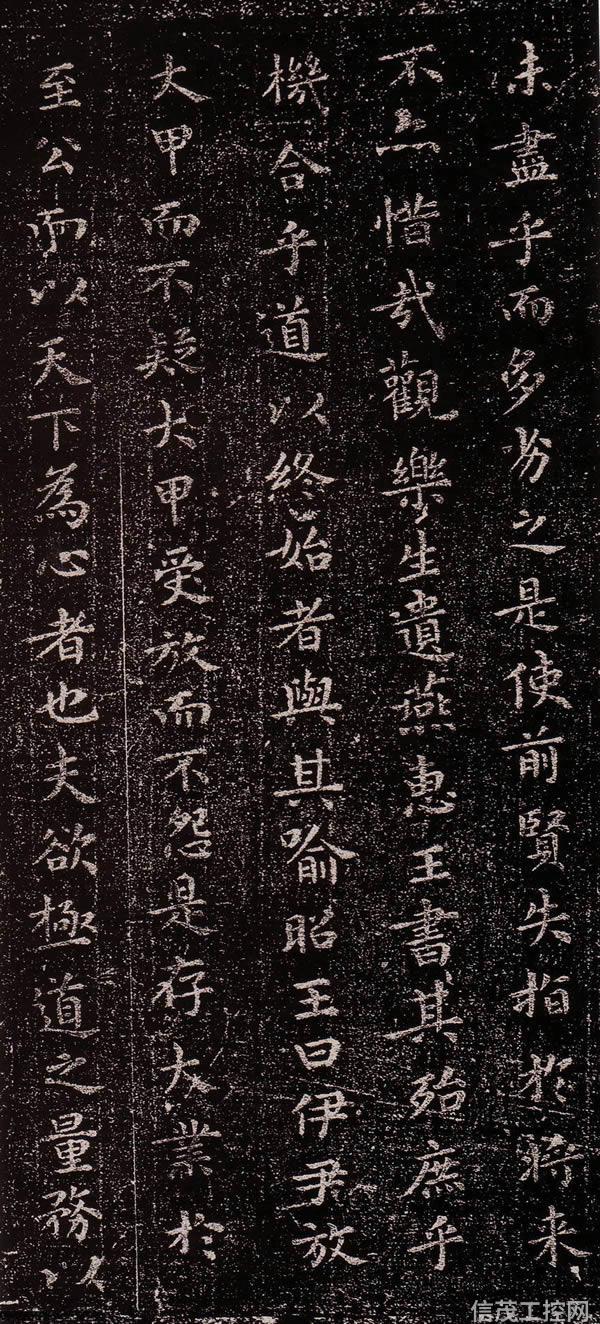 未盡乎而多劣之是使前賢失指於將来
不亦惜哉觀樂生遺燕惠王書其殆庶乎
機合乎道以終始者與其喻昭王曰伊尹放
大甲而不疑大甲受放而不怨是存大業於
至公而以天下為心者也夫欲極道之量務以
信茂工控网